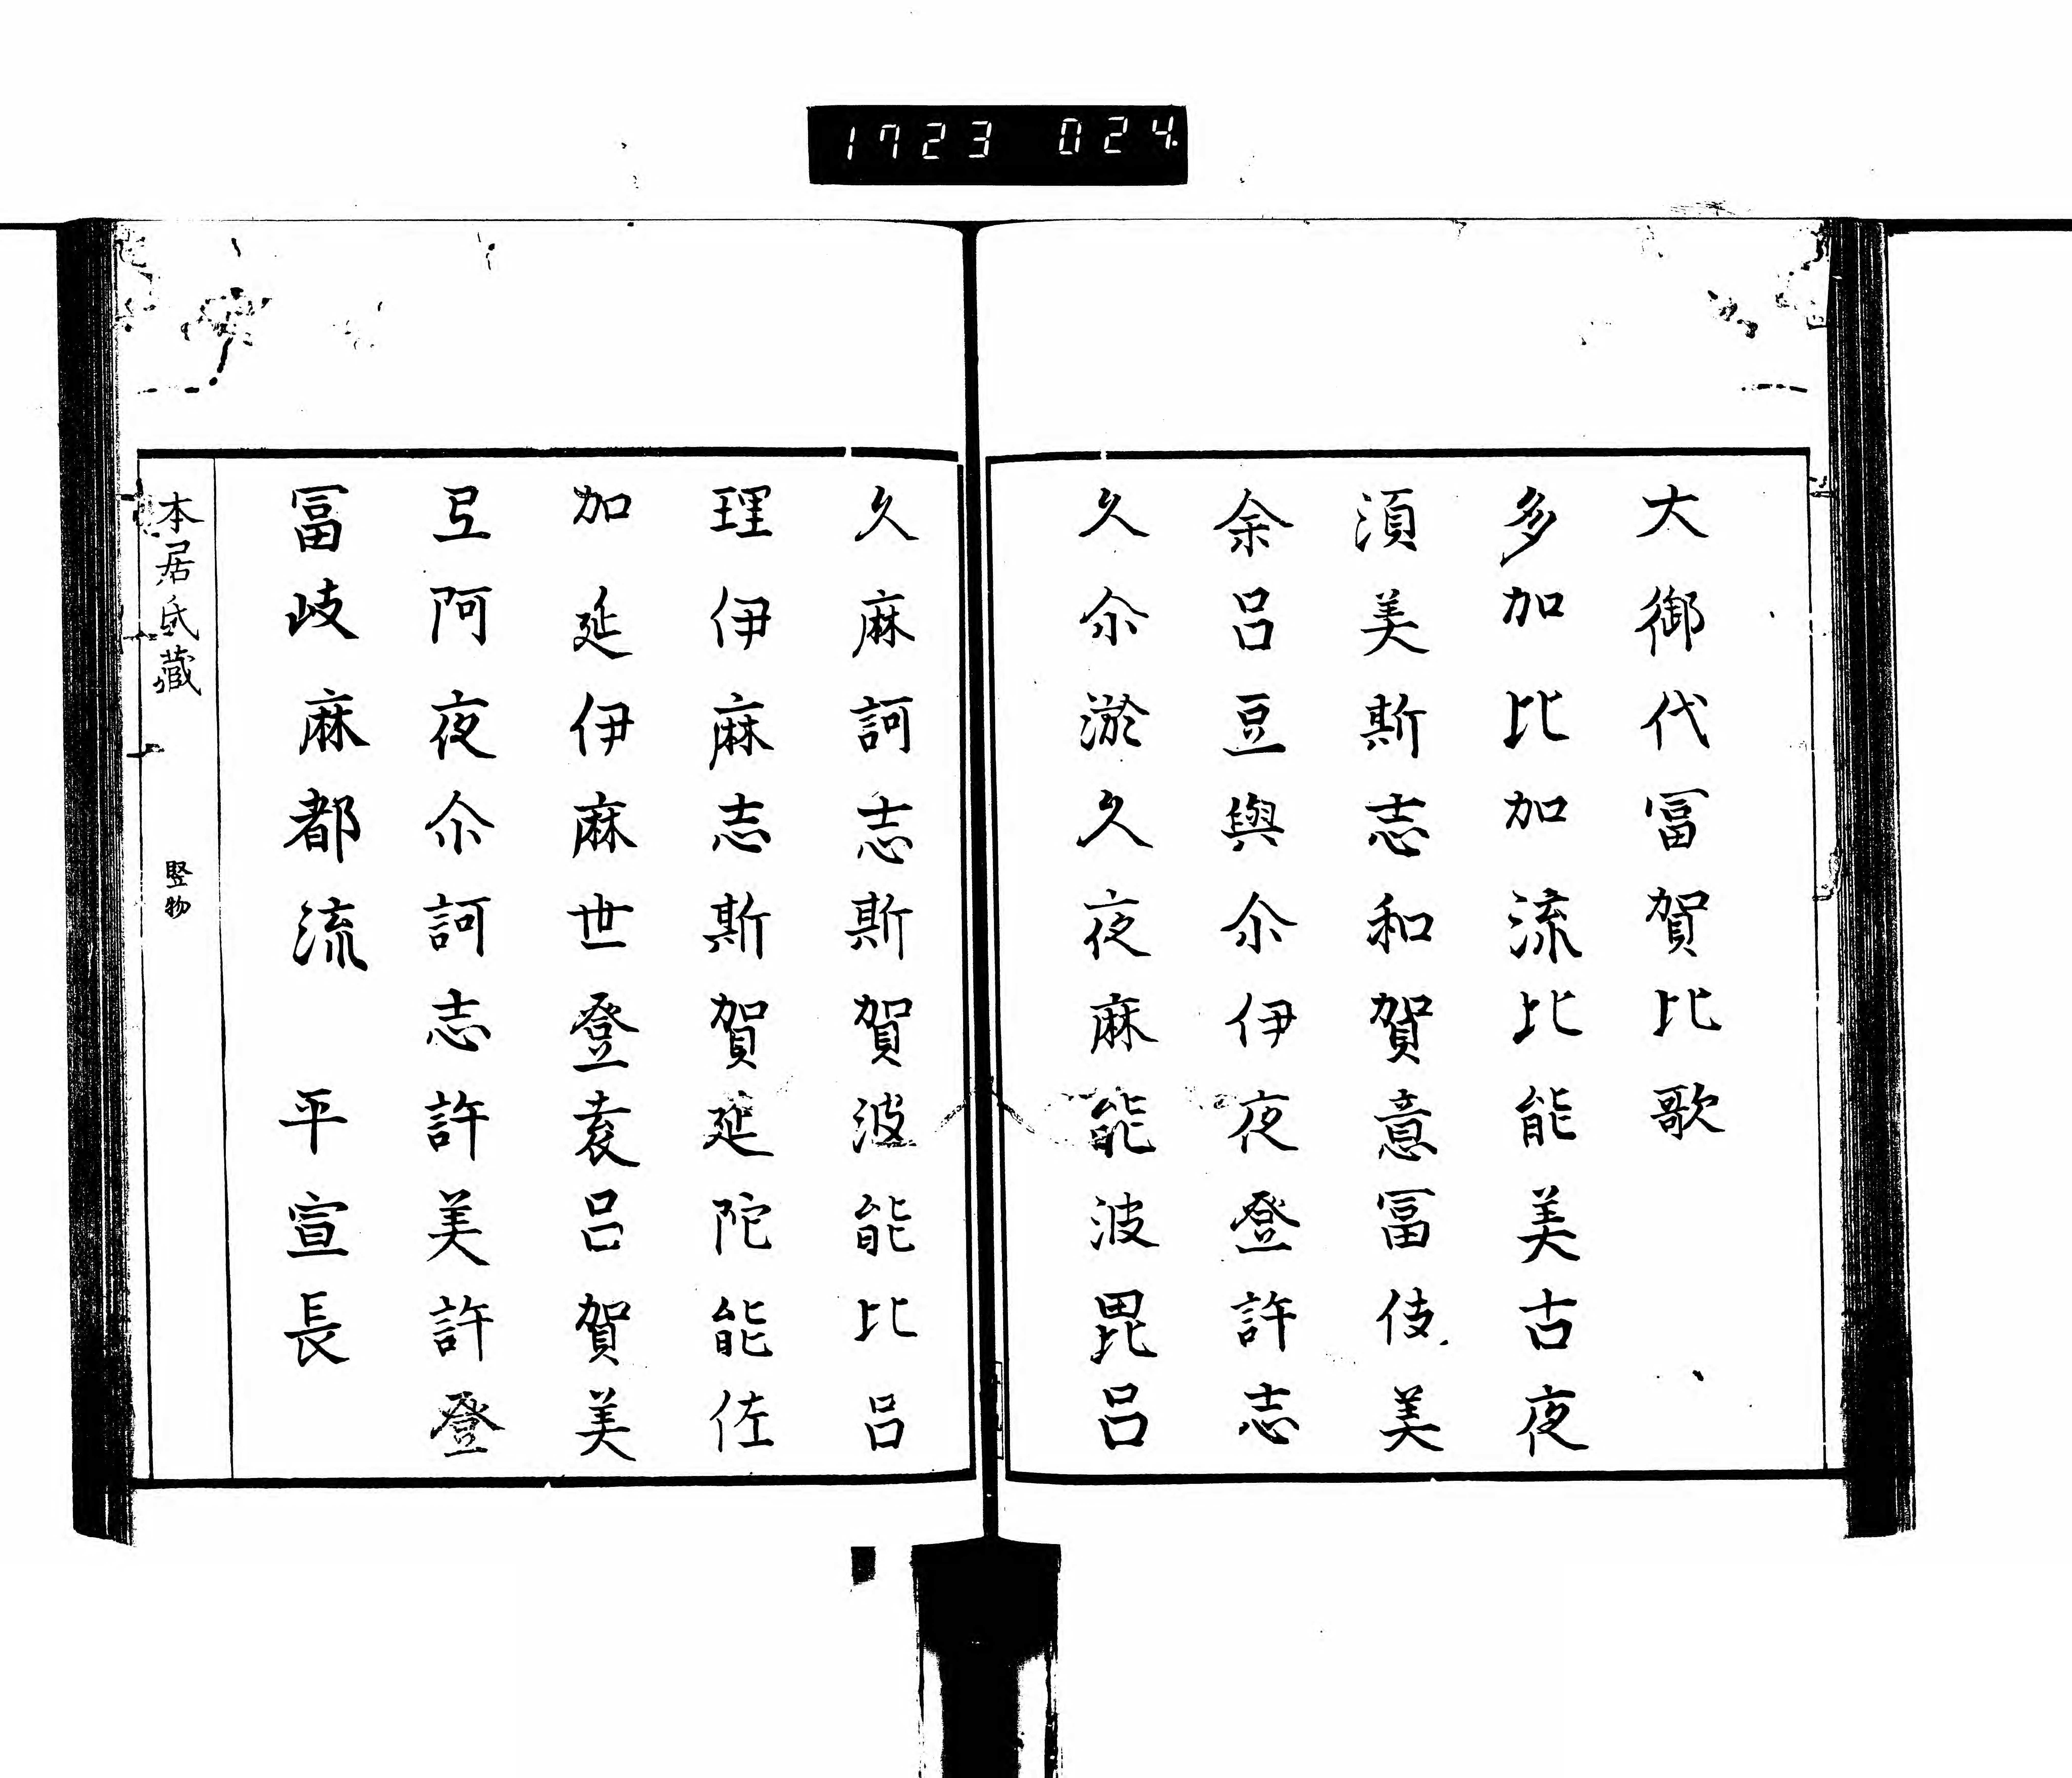 1723 024
大御代冨賀比歌
多加比加流比能美古夜
湏美斯志和賀意冨伎美
余呂豆與尒伊夜登許志
久尒淤久夜麻能波毘呂
久麻訶志斯賀波能比呂
理伊麻志斯賀延陀能佐
加延伊麻世登袁呂賀美
弖阿夜尒訶志許美許登
冨岐麻都流 平宣長
本居氏蔵 竪物